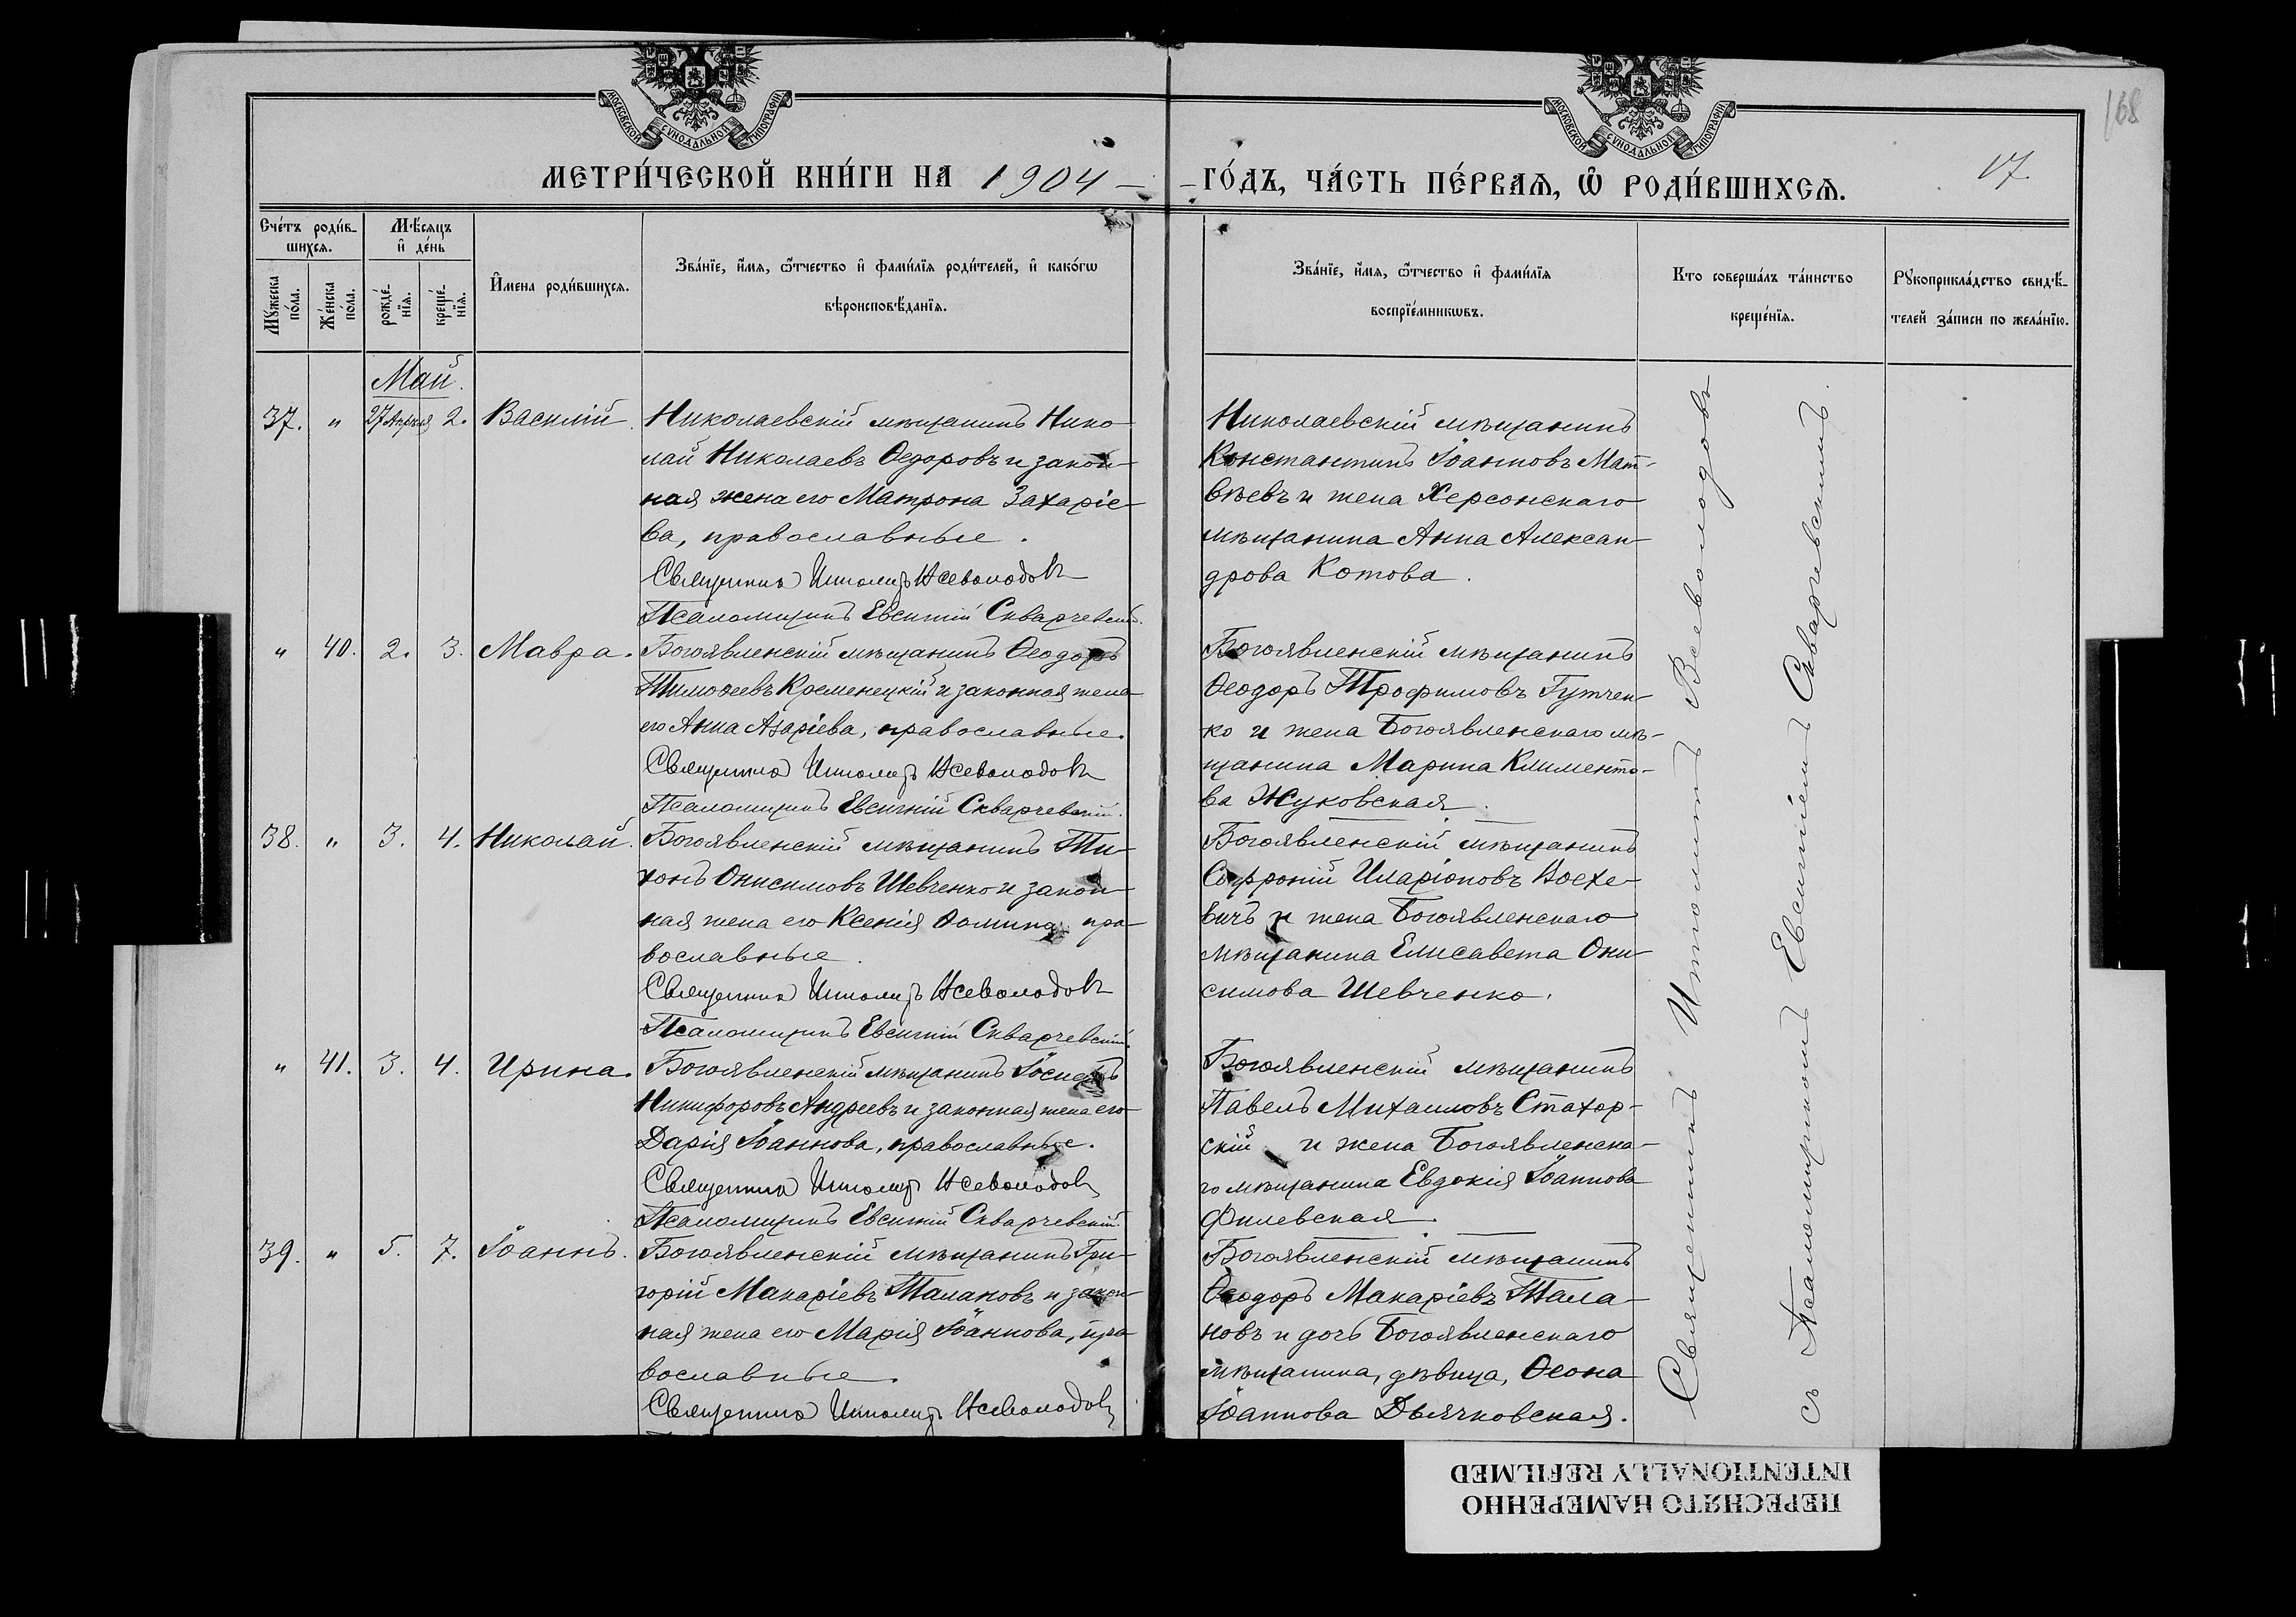 МОСКОВСКОЙ СѴНОДАЛЬНОЙ ТИПОГРАФІИ
МОСКОВСКОЙ СѴНОДАЛЬНОЙ ТИПОГРАФІИ
168
МЕТРИ́ЧЕСКОЙ КНИ́ГИ НА 1904 –
– ГО́ДЪ, ЧА́СТЬ ПЕ́РВАѦ, Ѡ҆ РОДИ́ВШИХСѦ.
17.
Сче́тъ роди́в-
шихсѧ.
Мѣ́сѧцъ
и҆ де́нь
Мꙋ́жеска
по́ла.
Же́нска
по́ла.
рожде́-
нїѧ.
креще́-
нїѧ.
И҆мена роди́вшихсѧ.
Зва́нїе, и҆́мѧ, ѻ҆́тчество и҆ фами́лїѧ роди́телей, и҆ како́гѡ
вѣроисповѣ́данїѧ.
Зва́нїе, и҆́мѧ, ѻ҆́тчество и҆ фами́лїѧ
воспрїе́мникѡвъ.
Кто соверша́лъ та́инство
креще́нїѧ.
Рꙋкоприкла́дство свидѣ́-
телей за́писи по жела́нїю.
Май.
37. „ 27 Апрѣля 2. Василій.
Николаевскій мѣщанинъ Нико-
лай Николаевъ Ѳедоровъ и закон-
ная жена его Матрона Захаріе-
ва, православные.
Священникъ Ипполитъ Всеволодовъ
Псаломщикъ Евсигній Скварчевскій.
Николаевскій мѣщанинъ
Константинъ Іоанновъ Мат-
вѣевъ и жена Херсонскаго
мѣщанина Анна Алексан-
дрова Котова.
„ 40. 2. 3. Мавра.
Богоявленскій мѣщанинъ Ѳеодоръ
Тимоѳеевъ Кременецкій и законная жена
его Анна Азаріева, православные.
Священникъ Ипполитъ Всеволодовъ
Псаломщикъ Евсигній Скварчевскій.
Богоявленскій мѣщанинъ
Ѳеодоръ Трофимовъ Гутчен-
ко и жена Богоявленскаго мѣ-
щанина Марина Климентo-
ва Жуковская.
38. „ 3. 4. Николай.
Богоявленскій мѣщанинъ Ти-
хонъ Онисимовъ Шевченко и закон-
ная жена его Ксенія Ѳомина, пра-
вославные.
Священникъ Ипполитъ Всеволодовъ
Псаломщикъ Евсигній Скварчевскій.
Богоявленскій мѣщанинъ
Софроній Иларіоновъ
и жена Богоявленскаго
мѣщанина Елисавета Они-
симова Шевченко.
„ 41. 3. 4. Ирина.
Богоявленскій мѣщанинъ Іосифъ
Никифоровъ Андреевъ и законная жена его
Дарія Іоаннова, православные.
Священникъ Ипполитъ Всеволодовъ
Псаломщикъ Евсигній Скварчевскій.
Богоявленскій мѣщанинъ
Павелъ Михаиловъ Стахор-
скій и жена Богоявленска-
го мѣщанина Евдокія Іоаннова
Филевская.
39. „ 5. 7. Іоаннъ.
Богоявленскій мѣщанинъ Гри-
горій Макаріевъ Талановъ и закон-
ная жена его Марія Іоаннова, пра-
вославные.
Священникъ Ипполитъ Всеволодовъ
Богоявленскій мѣщанинъ
Ѳеодоръ Макаріевъ Тала-
новъ и дочь Богоявленскаго
мѣщанина, дѣвица, Ѳеона
Іоаннова Дьячковская.
Священникъ Ипполитъ Всеволодовъ
съ Псаломщикомъ Евсигніемъ Скварчевскимъ.
ПЕРЕСНЯТО НАМЕРЕННО
INTENTIONALLY REFILMED